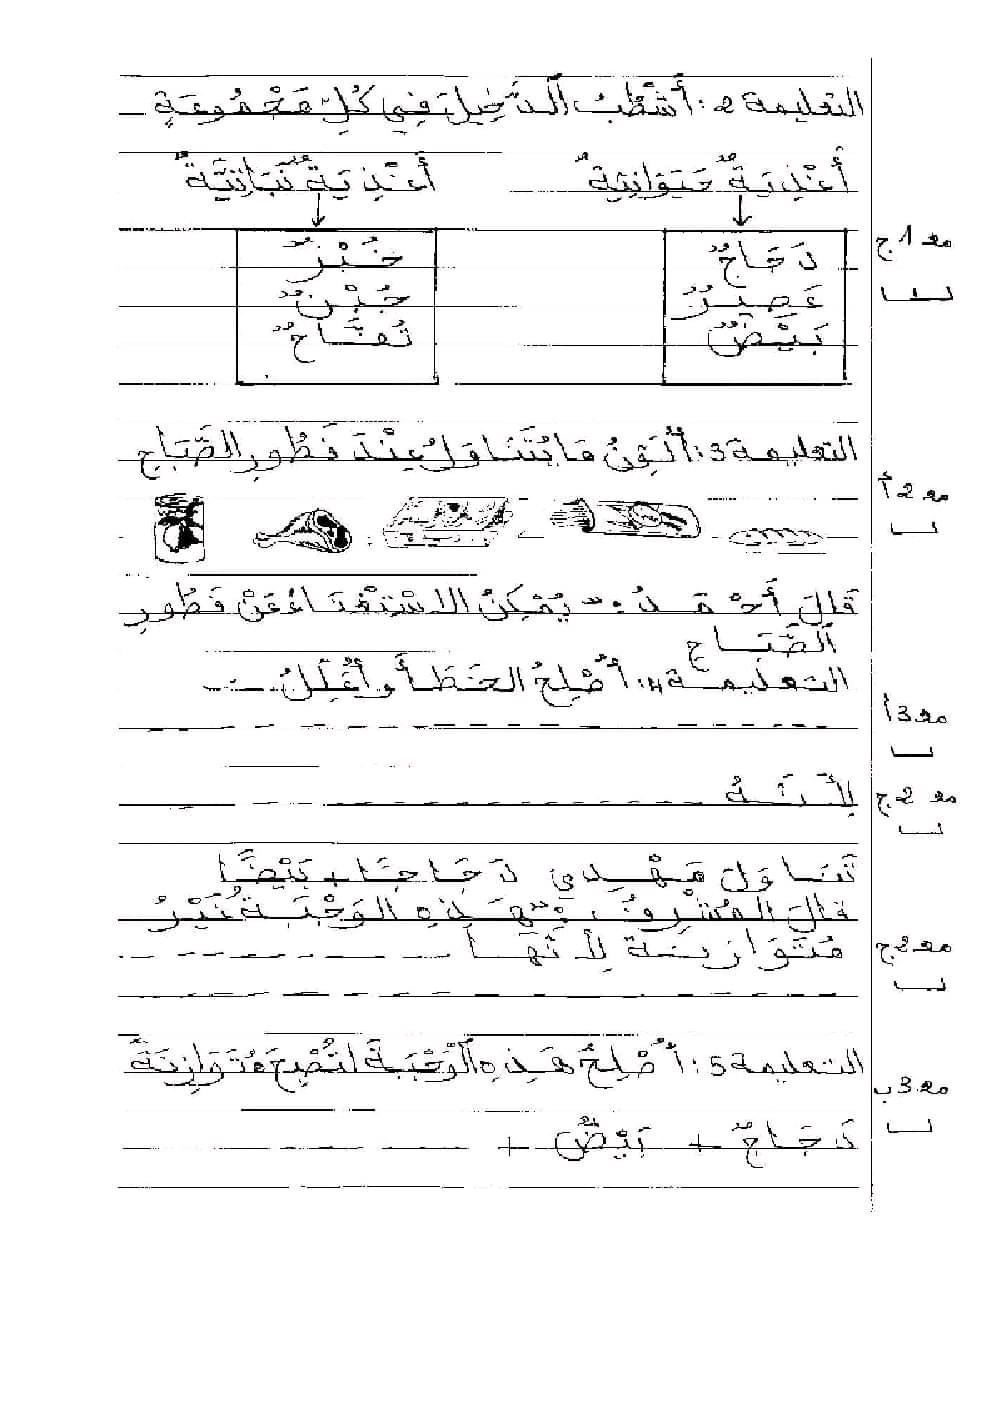 التعليمة 2: أَشْطُبُ الدَّخِيلَ فِي كُلِّ مَجْمُوعَةٍ
أَغْذِيَةٌ حَيَوَانِيَّةٌ أَغْذِيَةٌ نَبَاتِيَّةٌ
دَجَاجٌ خُبْزٌ
مع 1 ج
عَصِيرٌ جُبْنٌ
بَيْضٌ تُفَّاحٌ
التعليمة 3: أُلَوِّنُ مَا يُتَنَاوَلُ عِنْدَ فَطُورِ الصَّبَاحِ
مع 2 أ
قَالَ أَحْمَدُ: "يُمْكِنُ الاسْتِغْنَاءُ عَنْ فَطُورِ
الصَّبَاحِ
التعليمة 4: أُصْلِحُ الخَطَأَ وأُعَلِّلُ
مع 3 أ
لِأَنَّهُ
مع 2 ج
تَنَاوَلَ مَهْدِي دَجَاجًا + بَيْضًا
قَالَ المُشْرِفُ: "هَذِهِ الوَجْبَةُ غَيْرُ
مُتَوَازِنَة لِأَنَّهَا
مع 2 ج
التعليمة 5: أُصْلِحُ هَذِهِ الْوَجْبَةَ لِتُصْبِحَ مُتَوَازِنَةً
مع 3 ب
دَجَاجٌ + بَيْضٌ +